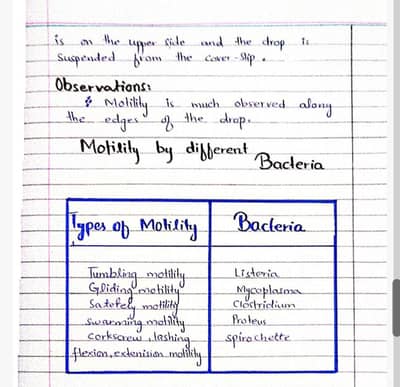 is on the upper side and the drop is
Suspended from the cover-slip.
Observations:
Motility is much observed along
the edges of the drop.
Motility by different Bacteria
Types of Motility Bacteria
Tumbling motility Listeria
Gliding motility Mycoplasma
Satefely motility Clostridium
Swarming motility Proteus
corkscrew, lashing, spirochette
flexion, extenision motility